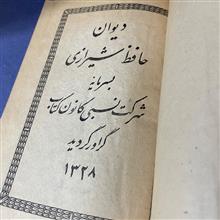 دیوان
حافظ شیرازی
بسرمایه
شرکت نسبی کانون کتاب
گراور گردید
۱۳۲۸